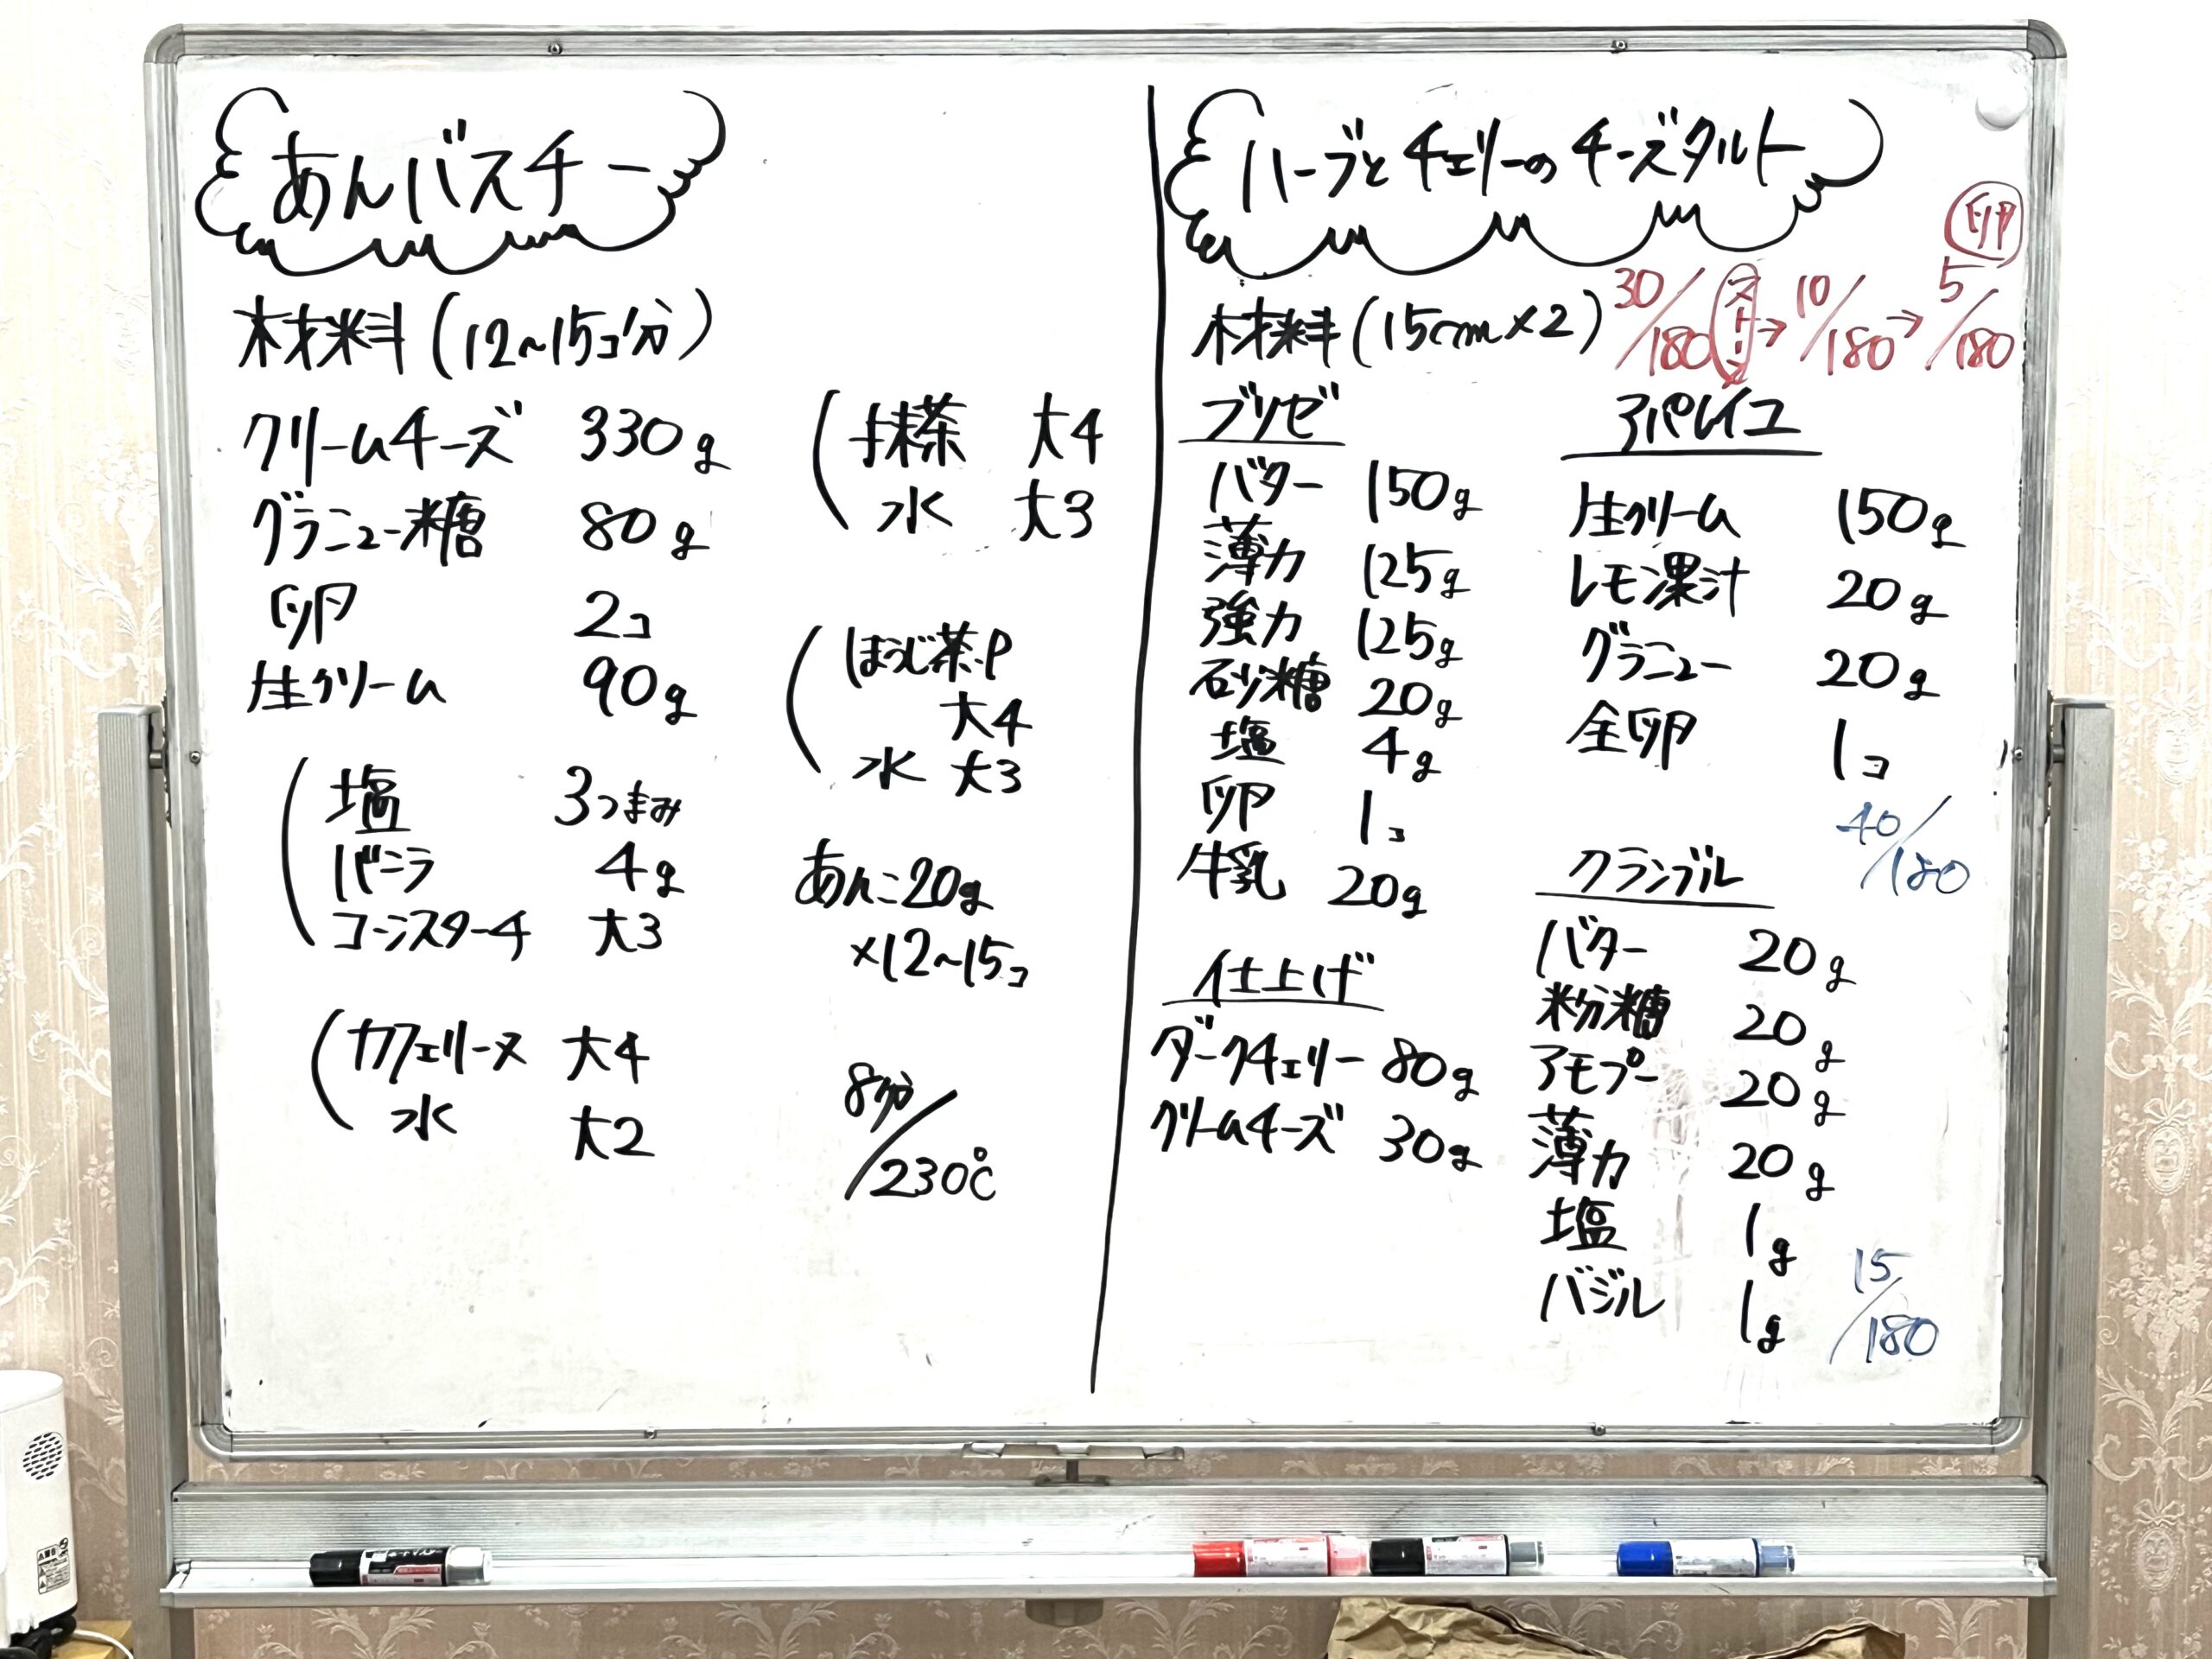 あんバスチー
材料(12~15コ分)
クリームチーズ 330g
グラニュー糖 80g
卵 2コ
生クリーム 90g
塩 3つまみ
バニラ 4g
コーンスターチ 大3
カフェリーヌ 大4
水 大2
抹茶 大4
水 大3
ほうじ茶P
大4
水 大3
あんこ20g
×12~15コ
8分/230℃
ハーブとチェリーのチーズタルト
材料(15cm×2)
30/180 ストーン→10/180→5/180
卵
ブリゼ
バター 150g
薄力 125g
強力 125g
砂糖 20g
塩 4g
卵 1コ
牛乳 20g
仕上げ
ダークチェリー 80g
クリームチーズ 30g
アパレイユ
生クリーム 150g
レモン果汁 20g
グラニュー 20g
全卵 1コ
40/180
クランブル
バター 20g
粉糖 20g
アモプー 20g
薄力 20g
塩 1g
バジル 1g
15/180